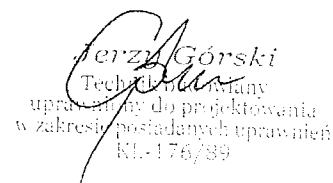 Jerzy Górski
Technik budowlany
uprawniony do projektowania
w zakresie posiadanych uprawnień
KL-176/89